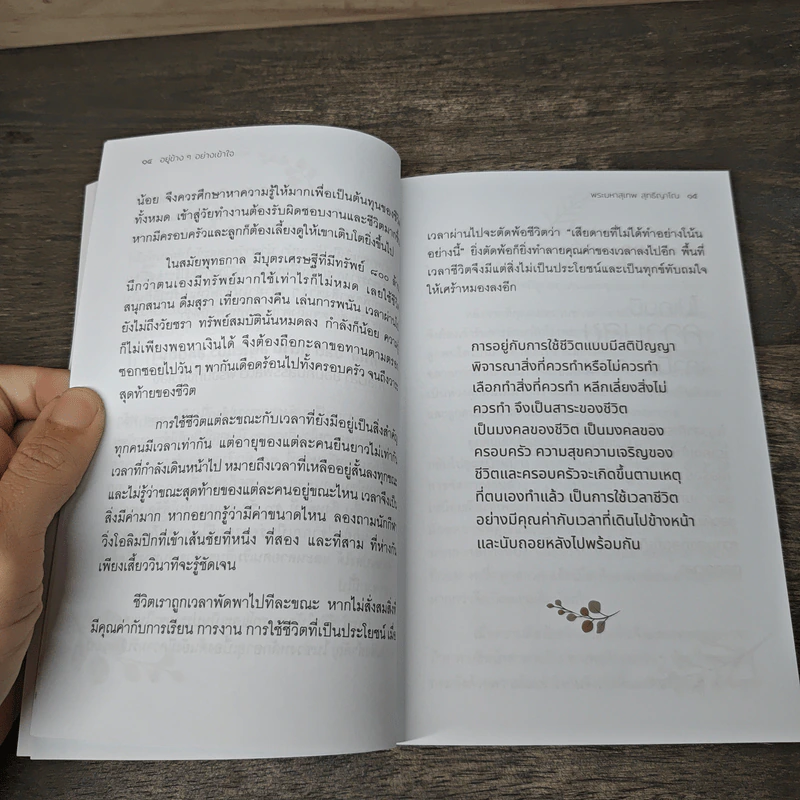 ๑๔ อยู่ข้าง ๆ อย่างเข้าใจ
น้อย จึงควรศึกษาหาความรู้ให้มากเพื่อเป็นต้นทุนของชีวิต
ทั้งหมด เข้าสู่วัยทำงานต้องรับผิดชอบงานและชีวิตมากขึ้น
หากมีครอบครัวและลูกก็ต้องเลี้ยงดูให้เขาเติบโตยิ่งขึ้นไป
ในสมัยพุทธกาล มีบุตรเศรษฐีที่มีทรัพย์ ๘๐๐ ล้าน
นึกว่าตนเองมีทรัพย์มากใช้เท่าไรก็ไม่หมด เลยใช้ชีวิต
สนุกสนาน ดื่มสุรา เที่ยวกลางคืน เล่นการพนัน เวลาผ่านไป
ยังไม่ถึงวัยชรา ทรัพย์สมบัตินั้นหมดลง กำลังก็น้อย
ก็ไม่เพียงพอหาเงินได้ จึงต้องถือกะลาขอทานตามตรอก
ซอกซอยไปวัน ๆ พากันเดือดร้อนไปทั้งครอบครัว จนถึงวาระ
สุดท้ายของชีวิต
การใช้ชีวิตแต่ละขณะกับเวลาที่ยังมีอยู่เป็นสิ่งสำคัญ
ทุกคนมีเวลาเท่ากัน แต่อายุของแต่ละคนยืนยาวไม่เท่ากัน
เวลาที่กำลังเดินหน้าไป หมายถึงเวลาที่เหลืออยู่สั้นลงทุกขณะ
และไม่รู้ว่าขณะสุดท้ายของแต่ละคนอยู่ขณะไหน เวลาจึงเป็น
สิ่งมีค่ามาก หากอยากรู้ว่ามีค่าขนาดไหน ลองถามนักกีฬา
วิ่งโอลิมปิกที่เข้าเส้นชัยที่หนึ่ง ที่สอง และที่สาม ที่ห่างกัน
เพียงเสี้ยววินาทีจะรู้ชัดเจน
ชีวิตเราถูกเวลาพัดพาไปทีละขณะ หากไม่สั่งสมสิ่งที่
มีคุณค่ากับการเรียน การงาน การใช้ชีวิตที่เป็นประโยชน์ เมื่อ
พระมหาสุเทพ สุทธิญาโณ ๑๕
เวลาผ่านไปจะตัดพ้อชีวิตว่า “เสียดายที่ไม่ได้ทำอย่างโน้น
อย่างนี้” ยิ่งตัดพ้อก็ยิ่งทำลายคุณค่าของเวลาลงไปอีก พื้นที่
เวลาชีวิตจึงมีแต่สิ่งไม่เป็นประโยชน์และเป็นทุกข์ทับถมใจ
ให้เศร้าหมองลงอีก
การอยู่กับการใช้ชีวิตแบบมีสติปัญญา
พิจารณาสิ่งที่ควรทำหรือไม่ควรทำ
เลือกทำสิ่งที่ควรทำ หลีกเลี่ยงสิ่งไม่
ควรทำ จึงเป็นสาระของชีวิต
เป็นมงคลของชีวิต เป็นมงคลของ
ครอบครัว ความสุขความเจริญของ
ชีวิตและครอบครัวจะเกิดขึ้นตามเหตุ
ที่ตนเองทำแล้ว เป็นการใช้เวลาชีวิต
อย่างมีคุณค่ากับเวลาที่เดินไปข้างหน้า
และนับถอยหลังไปพร้อมกัน